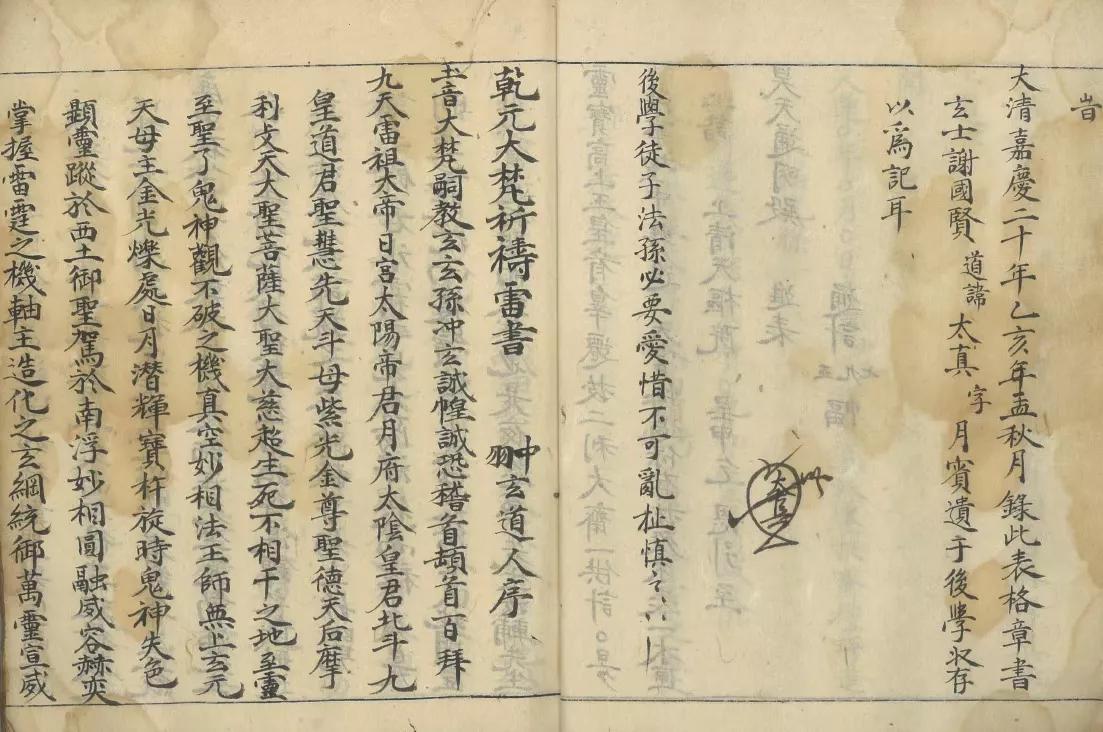 旹
大清嘉慶二十年乙亥年孟秋月錄此表格章書
玄士謝國賢道諱太真字月賓遺于後學収存
以爲記耳
後學徒子法孫必要愛惜不可亂扯慎之
乾元大梵祈禱雷書 冲玄道人序
玉音大梵嗣教玄玄孫冲玄誠惶誠恐稽首頓首百拜
九天雷祖大帝日宮太陽帝君月府太陰皇君北斗九
皇道君聖慧先天斗母紫光金尊聖德天后摩
利攴天大聖菩薩大聖大慈超生死不相干之地至靈
至聖了鬼神觀不破之機真空妙相法王師無上玄元
天母主金光爍處日月潛輝寶杵旋時鬼神失色
顯靈蹤於西土御聖駕於南浮妙相圓融威容赫奕
掌握雷霆之機軸主造化之玄綱統御萬靈宣威